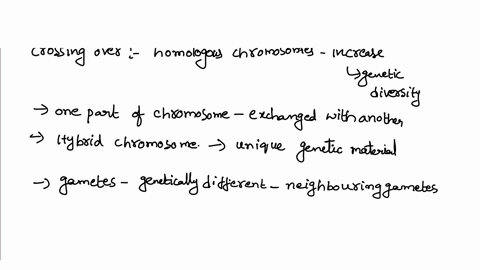 crossing over :- homologous chromosomes - increase
↳ genetic
diversity
→ one part of chromosome - exchanged with another
↪ Hybrid chromosome. → unique genetic material
→ gametes - genetically different - neighbouring gametes